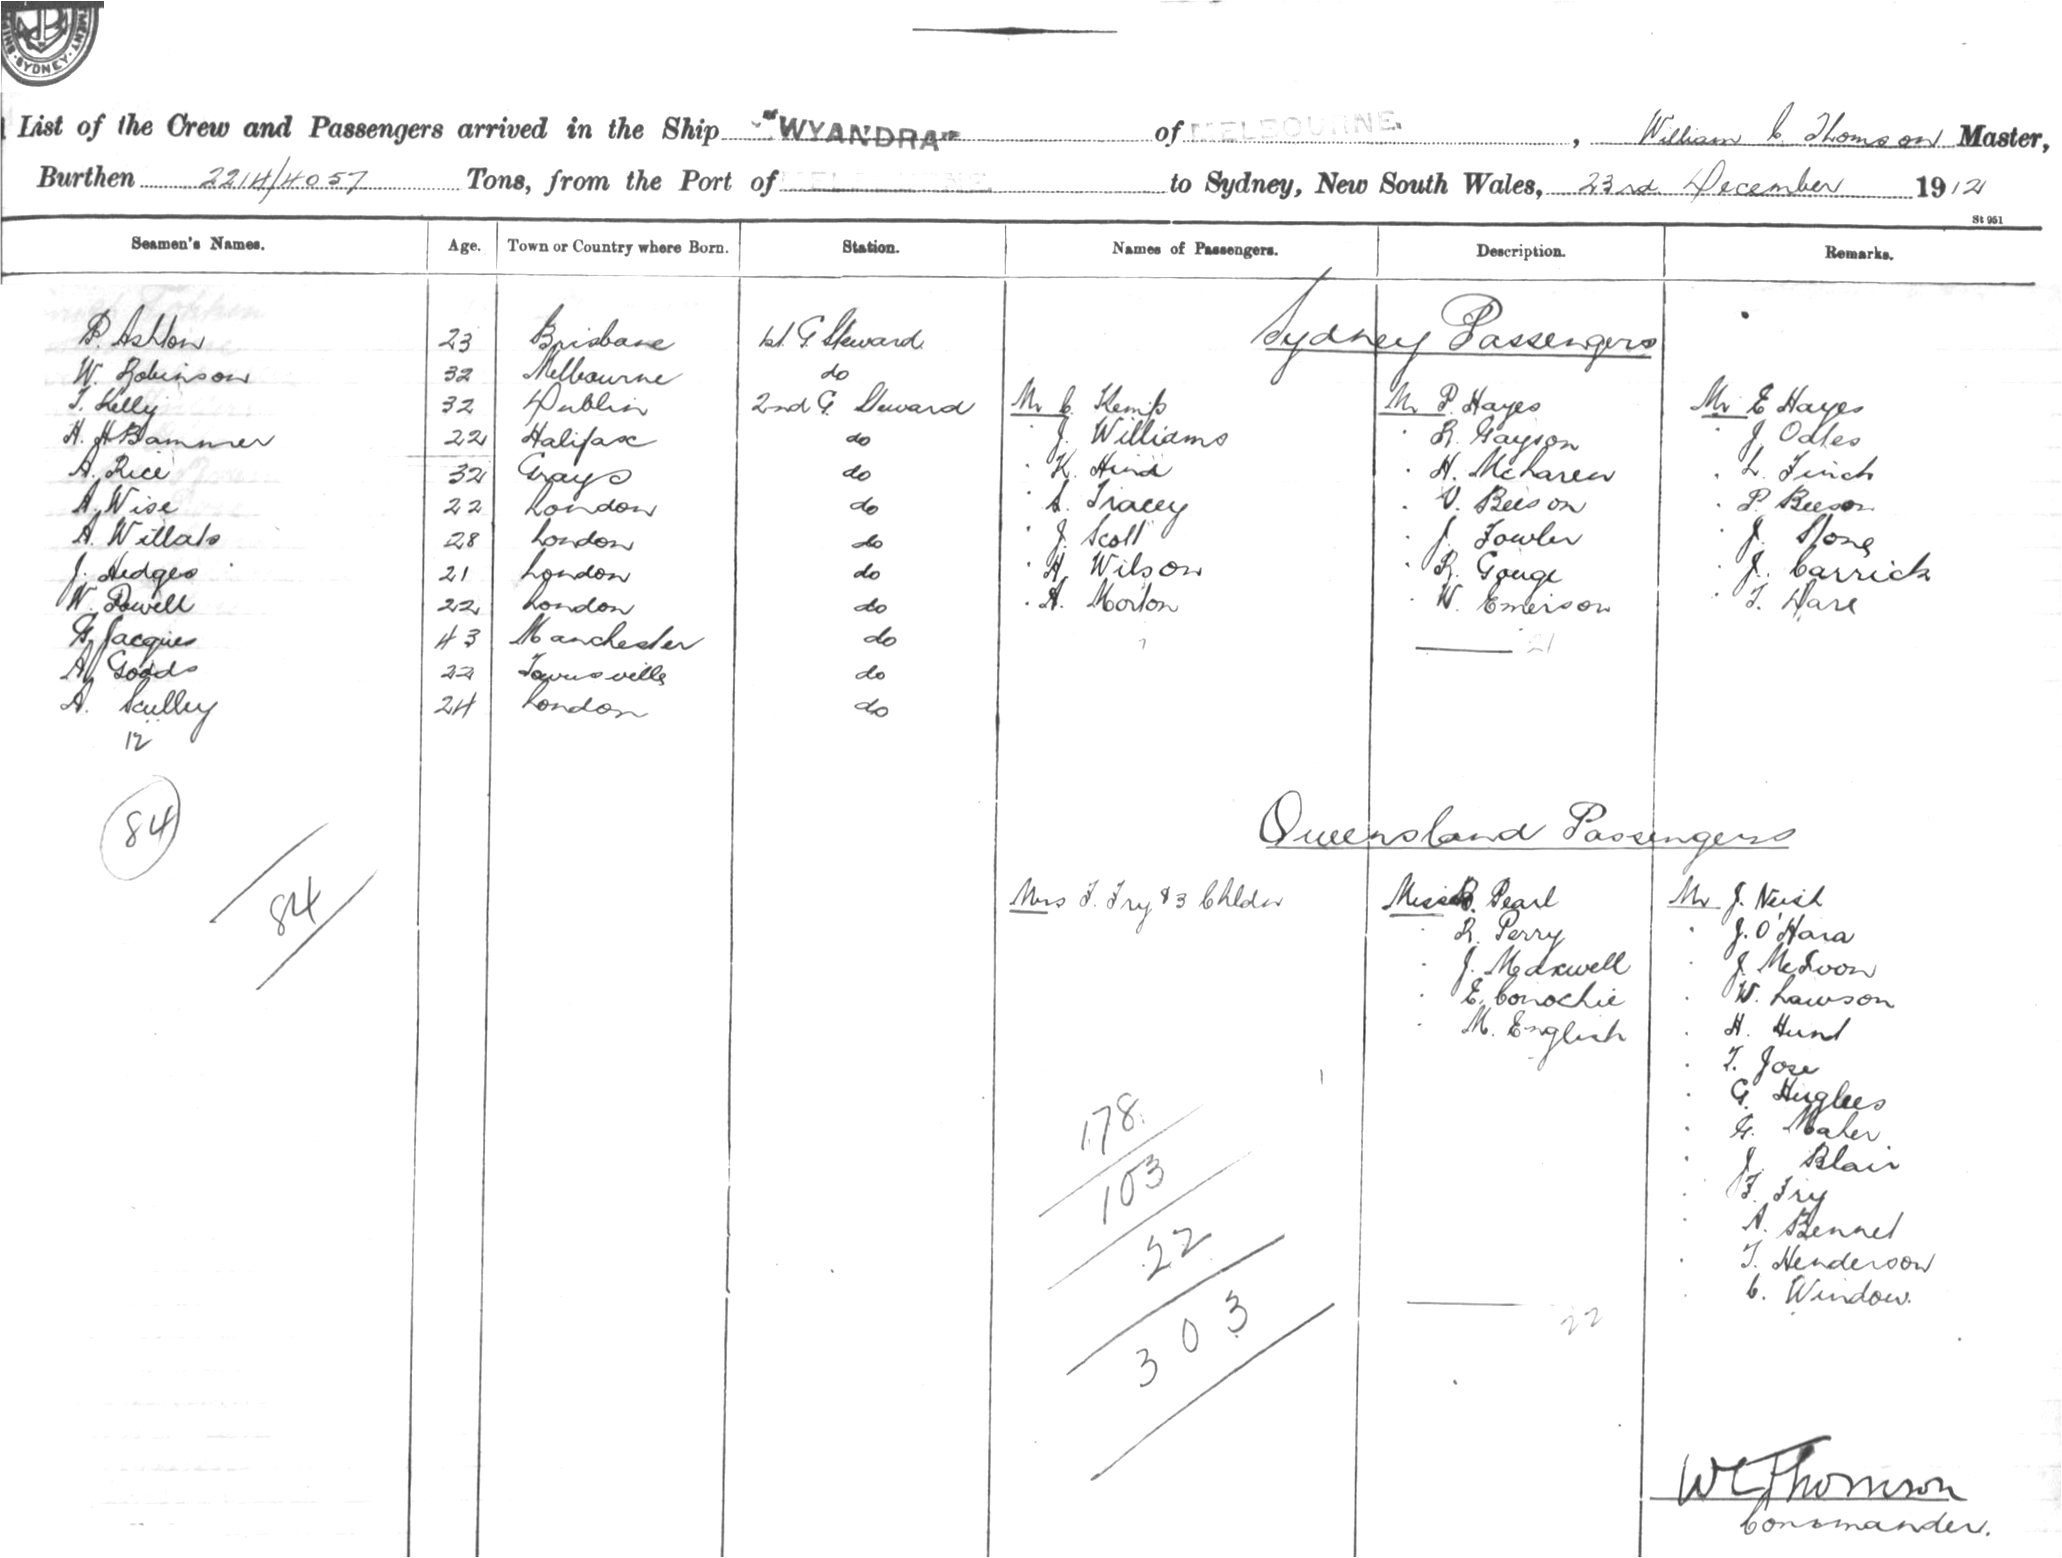 SYDNEY
List of the Crew and Passengers arrived in the Ship "WYANDRA" of MELBOURNE. , William C Thomson Master,
Burthen 2214/4057 Tons, from the Port of MELBOURNE to Sydney, New South Wales, 23rd December 1912
St 951
Seamen's Names. Age. Town or Country where Born. Station. Names of Passengers. Description. Remarks.
Sydney Passengers
P. Ashton 23 Brisbane 1st G. Steward
W. Robinson 32 Melbourne do
T. Kelly 32 Dublin 2nd G. Steward Mr C. Kemp Mr P. Hayes Mr E Hayes
H. H Bammer 22 Halifax do " J. Williams " R. Gayson " J. Oates
A. Rice 32 Grays do " K. Hind " H. McLaren " L. Finch
A. Wise 22 London do " S. Tracey " V. Beeson " P. Beeson
A. Willats 28 London do " J. Scott " J. Fowler " J. Stone
J. Hedges 21 London do " A. Wilson " R. Gouge " J. Carrick
W. Powell 22 London do " A. Morton " W. Emerson " T. Dare
G. Jacques 43 Manchester do 21
A. Goods 22 Townsville do
A. Sculley 24 London do
12
84
84
Queensland Passengers
Mrs F. Fry & 3 Childn Misses B. Pearl Mr J. Neish
" R. Perry " J. O'Hara
" J. Maxwell " J.
" E. Conochie " W. Lawson
" M. English " H. Hunt
" T. Jose
" G. Hughes
" G. Maher
" J. Blair
" F. Fry
" A. Bennet
" T. Henderson
" C. Window.
178
103
22
303
22
WC Thomson
Commander.